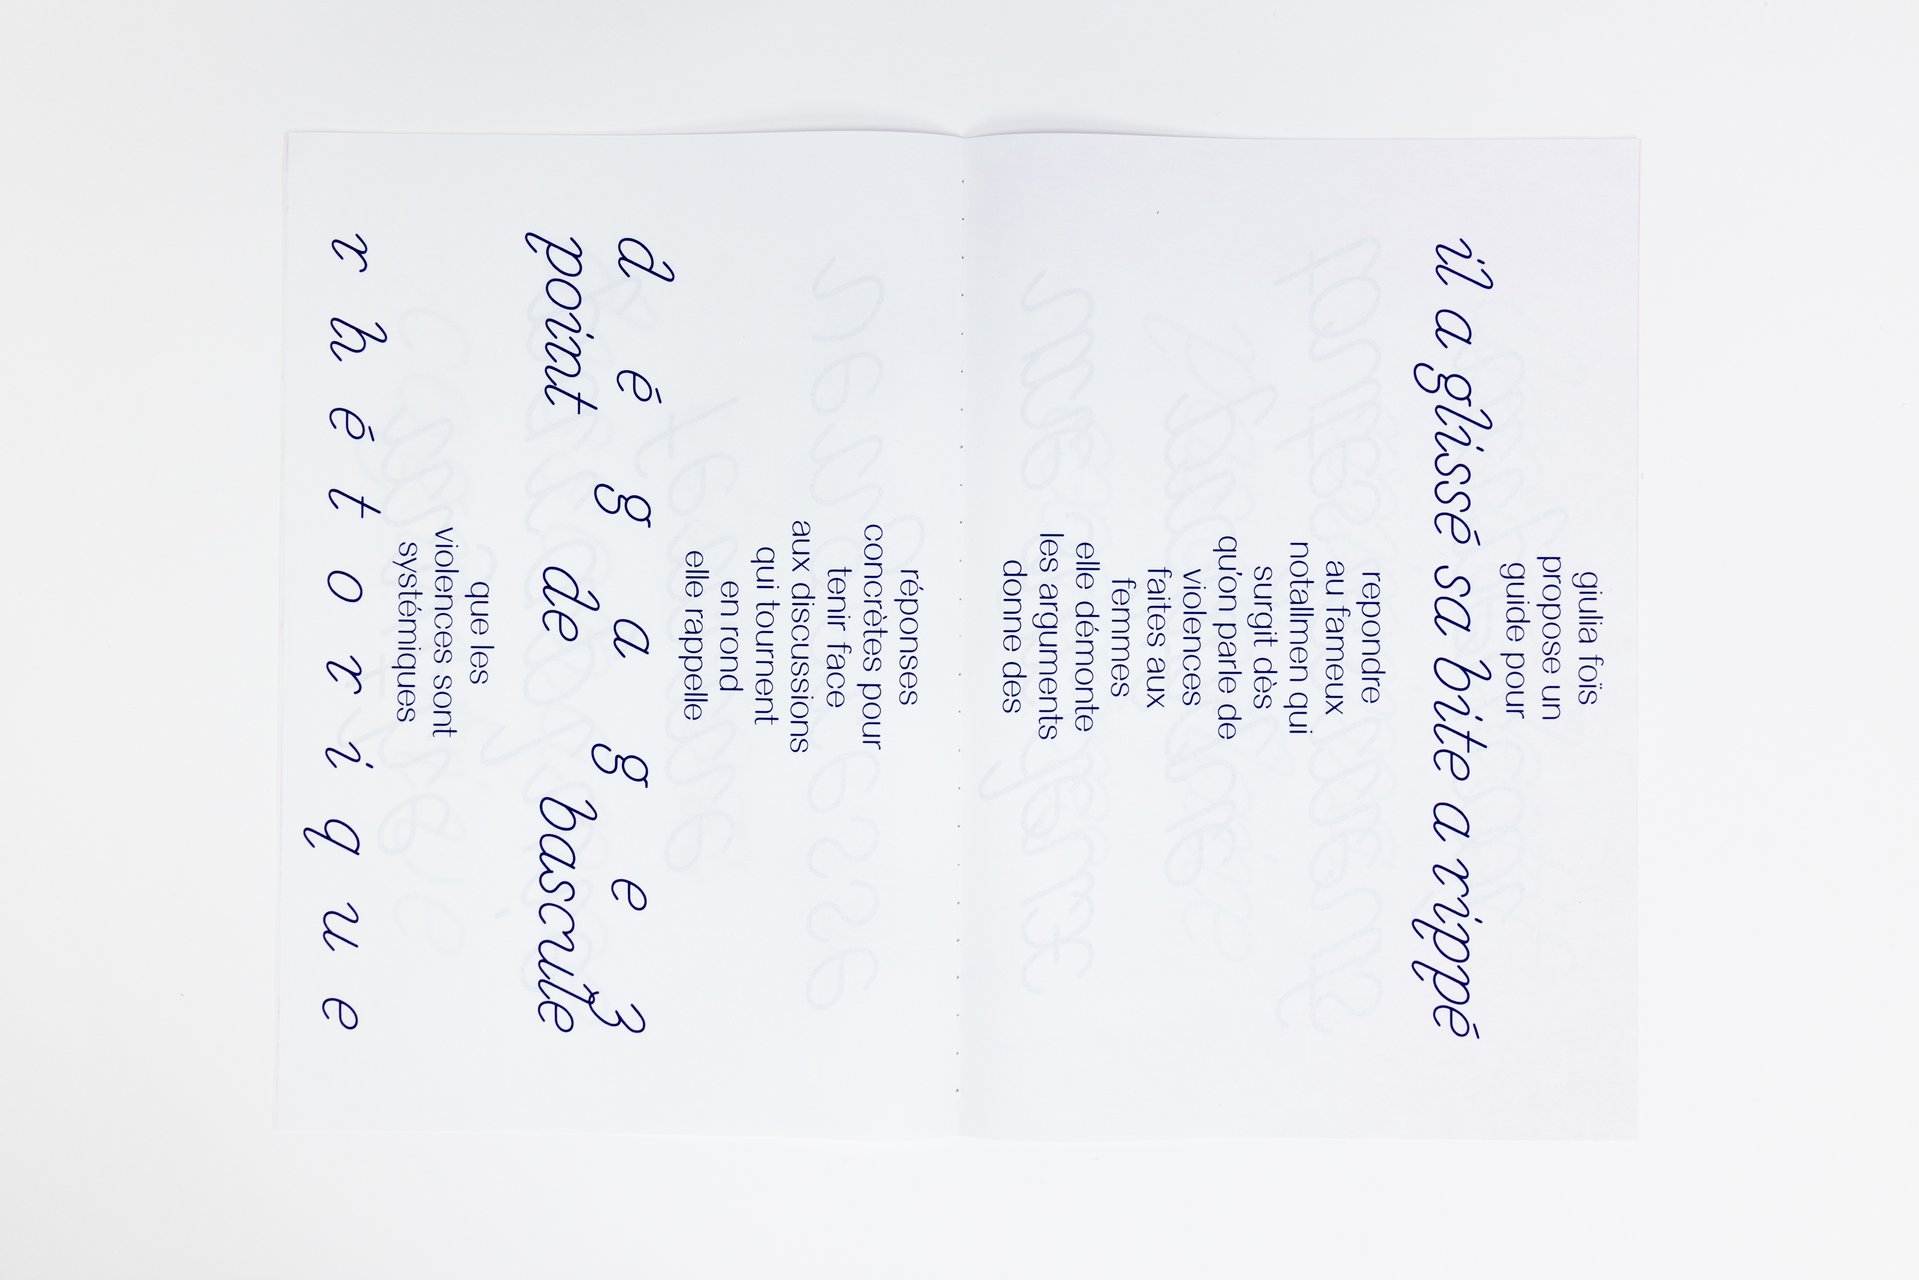 giulia foïs
propose un
guide pour
il a glissé sa bite a rippé
repondre
au fameux
notallmen qui
surgit dès
qu'on parle de
violences
faites aux
femmes
elle démonte
les arguments
donne des
réponses
concrètes pour
tenir face
aux discussions
qui tournent
en rond
elle rappelle
d é g a g e z
point de bascule
que les
violences sont
systémiques
r h é t o r i q u e